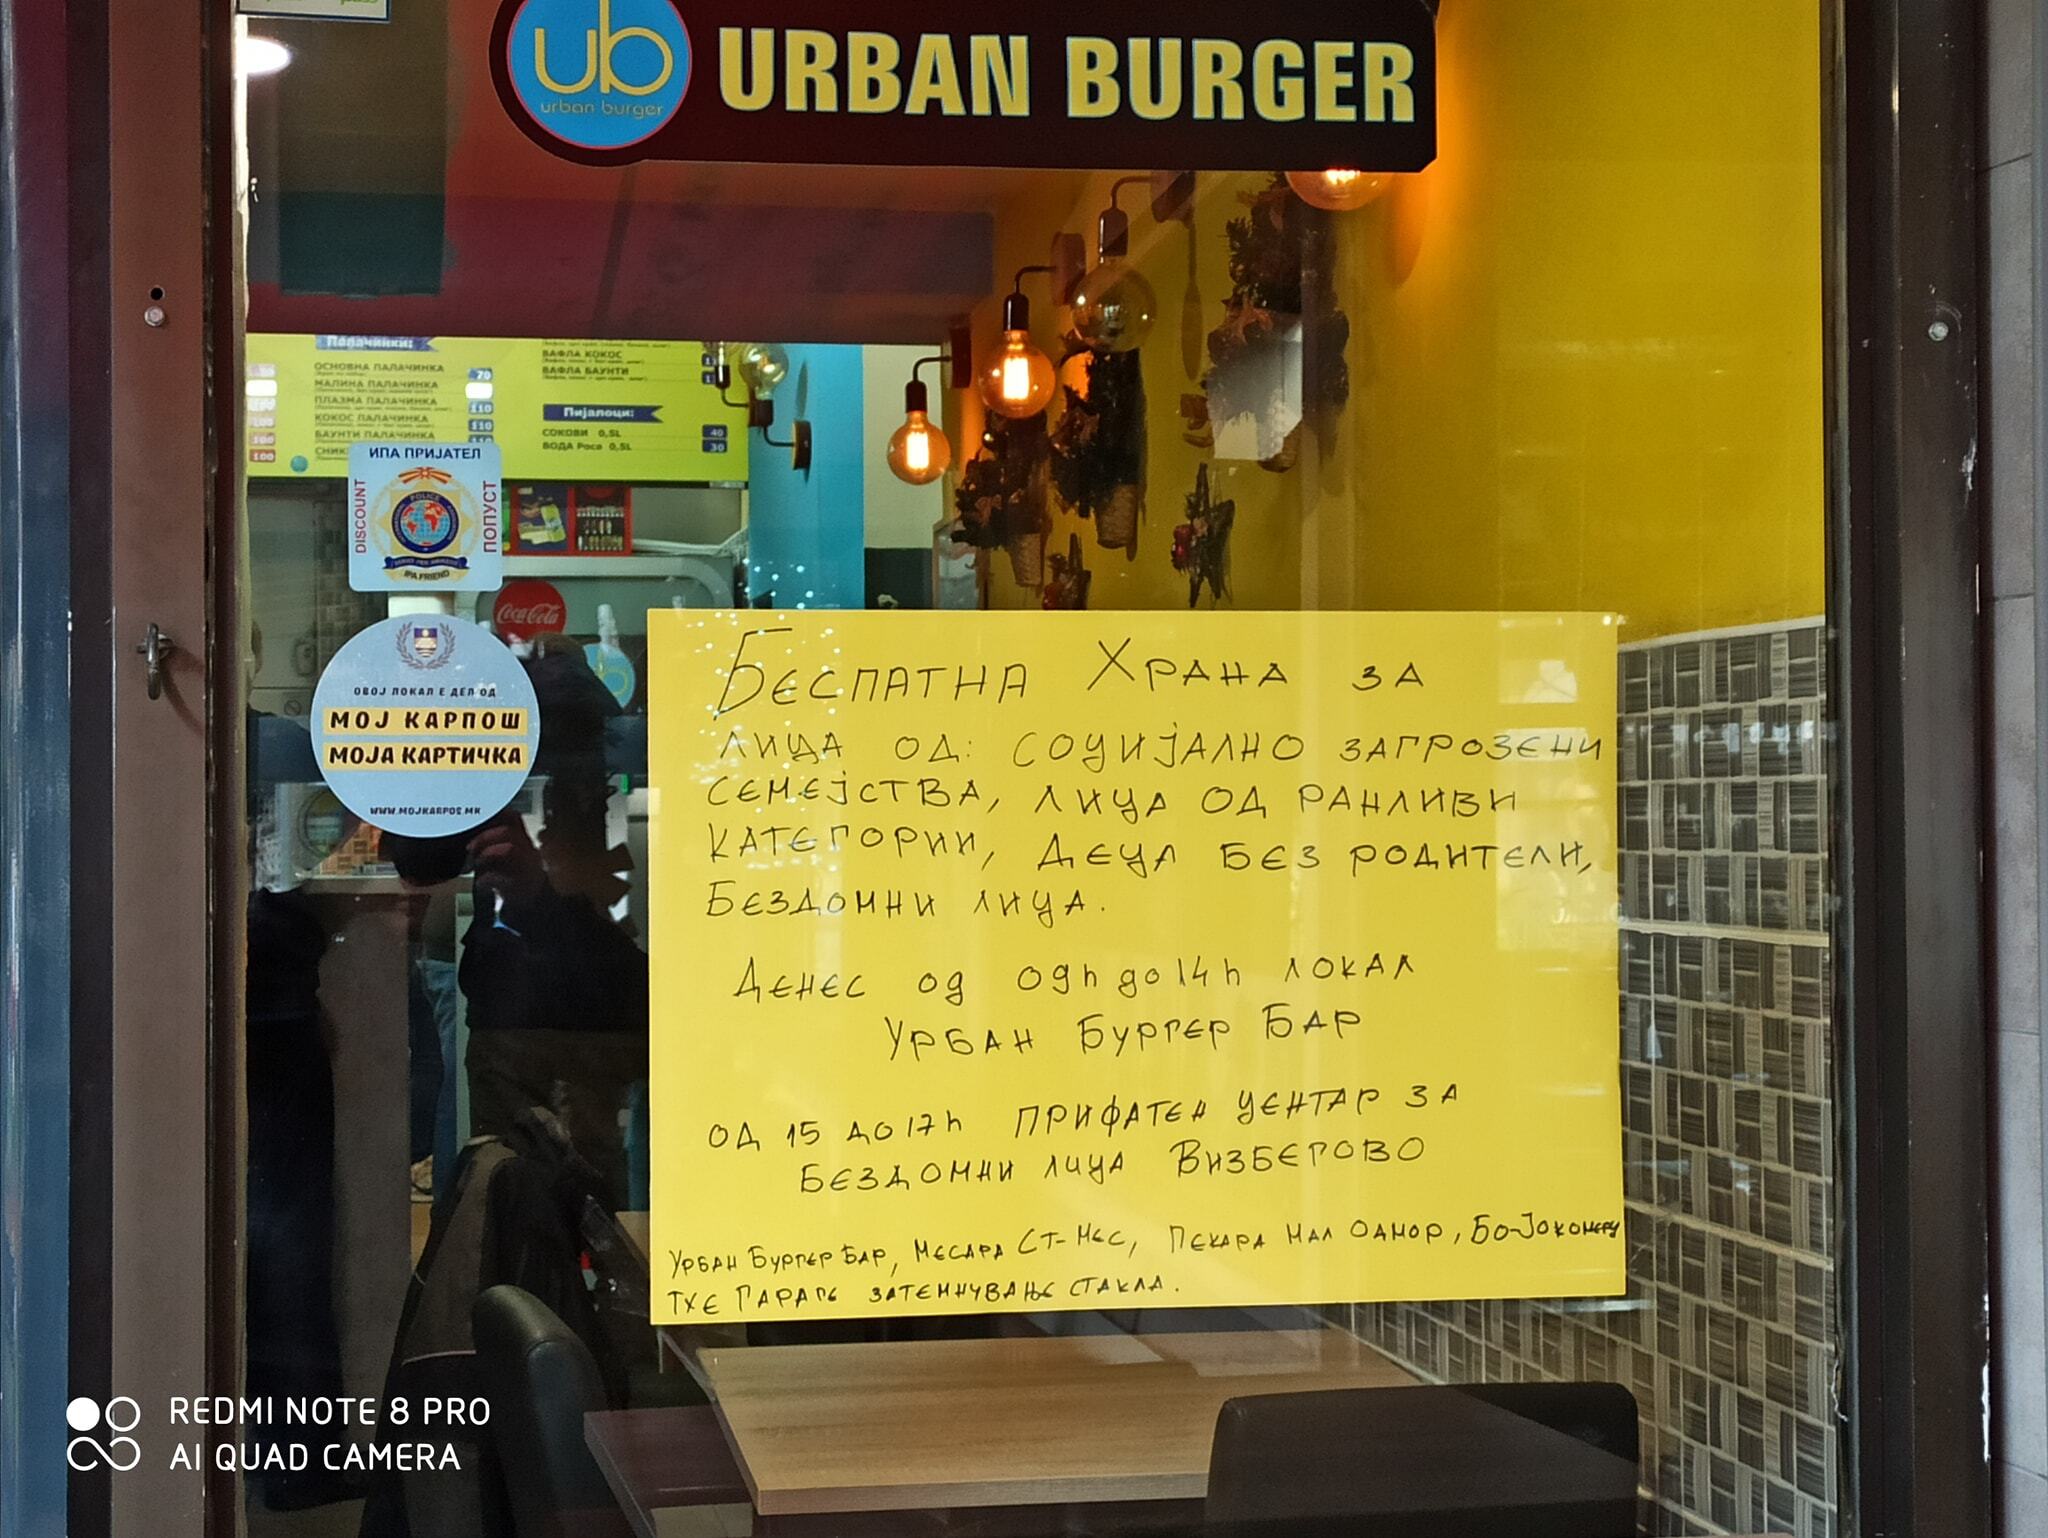 ub
urban burger
URBAN BURGER
Палачинки:
ОСНОВНА ПАЛАЧИНКА 70
МАЛИНА ПАЛАЧИНКА
ПЛАЗМА ПАЛАЧИНКА 110
КОКОС ПАЛАЧИНКА 110
БАУНТИ ПАЛАЧИНКА 110
100
100
100
ВАФЛА КОКОС
ВАФЛА БАУНТИ
Пијалоци:
СОКОВИ 0,5L 40
ВОДА Роса 0,5L 30
ИПА ПРИЈАТЕЛ
DISCOUNT
ПОПУСТ
POLICE
IPA FRIEND
Coca-Cola
ОВОЈ ЛОКАЛ Е ДЕЛ ОД
МОЈ КАРПОШ
МОЈА КАРТИЧКА
WWW.MOJKARPOS.MK
БЕСПАТНА ХРАНА ЗА
ЛИЦА ОД: СОЦИЈАЛНО ЗАГРОЗЕНИ
СЕМЕЈСТВА, ЛИЦА ОД РАНЛИВИ
КАТЕГОРИИ, ДЕЦА БЕЗ РОДИТЕЛИ,
БЕЗДОМНИ ЛИЦА.
ДЕНЕС од 09h до 14h ЛОКАЛ
УРБАН БУРГЕР БАР
ОД 15 ДО 17h ПРИФАТЕН ЦЕНТАР ЗА
БЕЗДОМНИ ЛИЦА ВИЗБЕГОВО
УРБАН БУРГЕР БАР, МЕСАРА СТ-МЕС, ПЕКАРА МАЛ ОДМОР, БО-ЈОКОМЕРЦ
ТХЕ ГАРАГЕ ЗАТЕМНУВАЊЕ СТАКЛА.
REDMI NOTE 8 PRO
AI QUAD CAMERA